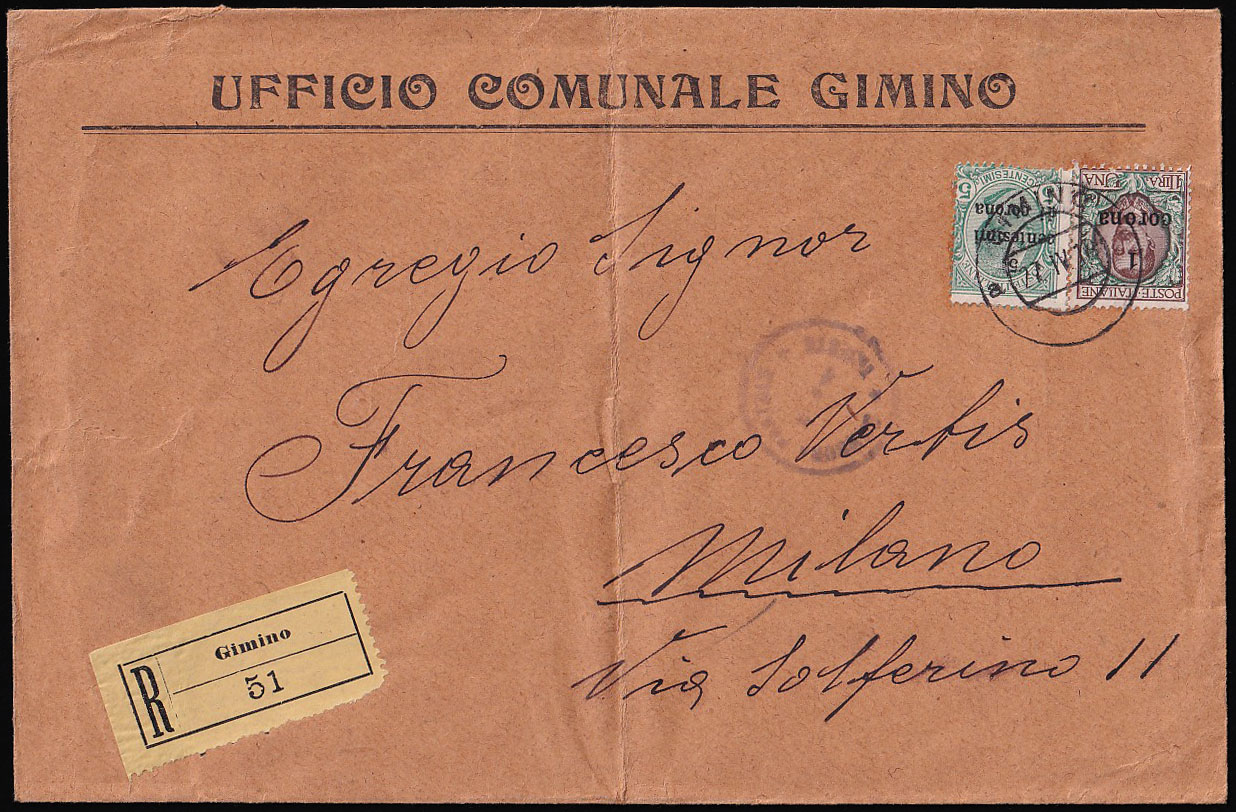 UFFICIO COMUNALE GIMINO
5
CENTESIMI
5
centesimi
di
corona
LIRA UNA
1
corona
POSTE·ITALIANE
Egregio Signor
Francesco Vertis
Milano
Via Solferino 11
Gimino
R
51